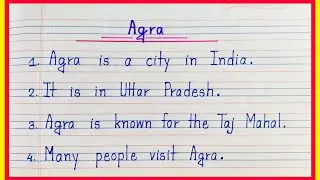 Agra
1. Agra is a city in India.
2. It is in Uttar Pradesh.
3. Agra is known for the Taj Mahal.
4. Many people visit Agra.